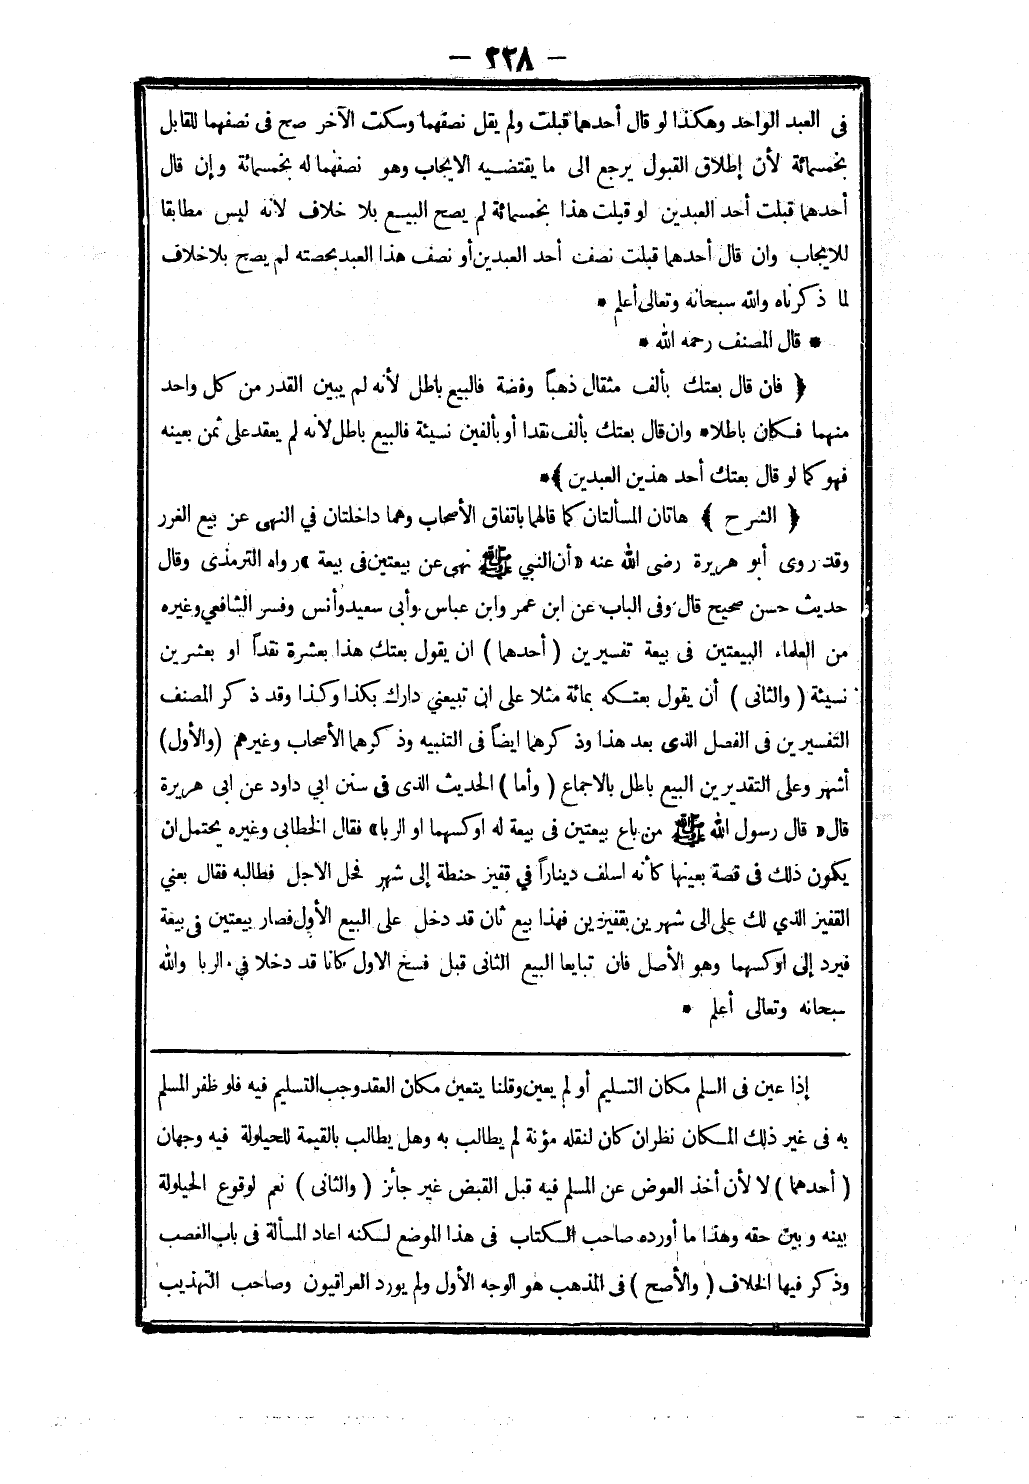 — ٣٣٨ —
فى العبد الواحد وهكذا لو قال أحدهما قبلت ولم يقل نصفهما وسكت الآخر صح فى نصفهما للقابل
بخمسمائة لأن إطلاق القبول يرجع الى ما يقتضيه الايجاب وهو نصفهما له بخمسمائة وإن قال
أحدهما قبلت أحد العبدين او قبلت هذا بخمسمائة لم يصح البيع بلا خلاف لأنه ليس مطابقا
للايجاب وان قال أحدهما قبلت نصف أحد العبدين أو نصف هذا العبد بحصته لم يصح بلا خلاف
لما ذكرناه والله سبحانه وتعالى أعلم *
* قال المصنف رحمه الله *
﴿ فان قال بعتك بألف مثقال ذهباً وفضة فالبيع باطل لأنه لم يبين القدر من كل واحد
منهما فكان باطلا* وان قال بعتك بألف نقدا أو بألفين نسيئة فالبيع باطل لأنه لم يعقد على ثمن بعينه
فهو كما لو قال بعتك أحد هذين العبدين ﴾*
﴿ الشرح ﴾ هاتان المسألتان كما قالهما باتفاق الأصحاب وهما داخلتان في النهى عن بيع الغرر
وقد روى أبو هريرة رضى الله عنه «أن النبي ﷺ نهى عن بيعتين فى بيعة » رواه الترمذى وقال
حديث حسن صحيح قال وفى الباب عن ابن عمر وابن عباس وأبى سعيد وأنس وفسر الشافعي وغيره
من العلماء البيعتين فى بيعة تفسيرين ( أحدهما ) ان يقول بعتك هذا بعشرة نقداً او بعشرين
نسيئة ( والثانى ) أن يقول بعتكه بمائة مثلا على ان تبيعني دارك بكذا وكذا وقد ذكر المصنف
التفسيرين فى الفصل الذى بعد هذا وذكرهما ايضاً فى التنبيه وذكرهما الأصحاب وغيرهم (والأول)
أشهر وعلى التقديرين البيع باطل بالاجماع ( وأما ) الحديث الذى فى سنن ابي داود عن ابى هريرة
قال« قال رسول الله ﷺ من باع بيعتين فى بيعة له اوكسهما او الربا» فقال الخطابى وغيره يحتمل ان
يكون ذلك فى قصة بعينها كأنه اسلف ديناراً في قفيز حنطة إلى شهر فحل الاجل فطالبه فقال بعني
القفيز الذي لك على الى شهرين بقفيزين فهذا بيع ثان قد دخل على البيع الأول فصار بيعتين فى بيعة
فيرد إلى اوكسهما وهو الأصل فان تبايعا البيع الثانى قبل فسخ الاول كانا قد دخلا في الربا والله
سبحانه وتعالى أعلم *
إذا عين فى السلم مكان التسليم أو لم يعين وقلنا يتعين مكان العقد وجب التسليم فيه فلو ظفر المسلم
به فى غير ذلك المكان نظر ان كان لنقله مؤنة لم يطالب به وهل يطالب بالقيمة للحيلولة فيه وجهان
( أحدهما ) لا لأن أخذ العوض عن المسلم فيه قبل القبض غير جائز ( والثانى ) نعم لوقوع الحيلولة
بينه وبين حقه وهذا ما أورده صاحب الكتاب فى هذا الموضع لكنه اعاد المسألة فى باب الغصب
وذكر فيها الخلاف ( والأصح ) فى المذهب هو الوجه الأول ولم يورد العراقيون وصاحب التهذيب